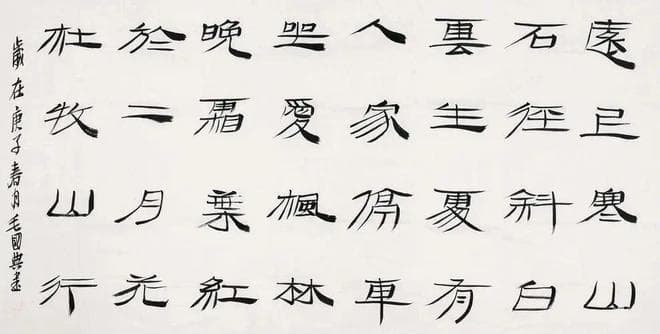 遠上寒山
石徑斜白
雲生處有
人家停車
坐愛楓林
晚霜葉紅
於二月花
杜牧山行
歲在庚子春月毛國典書